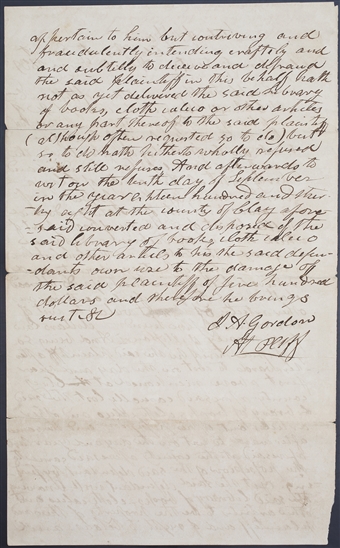 appertain to him but contriving and
fraudulently intending craftily and
and subtilly to deceive and defraud
the said plaintiff in the behalf hath
not as yet delivered the said library
of books, cloth calico or other articles
or any part thereof to the said plaintiff
(although often requested so to do) but
so to do hath hitherto wholly refused
and still refuses And afterwards to
wit on the day of September
in the year eighteen hundred and thir
ty at the county of Clay afore
said converted and disposed of the
said library of books, cloth calico
and other articles to his the said defen-
dants own use to the damage of
the said plaintiff of five hundred
dollars and therefore he brings
suit &c
J. A. Gordon